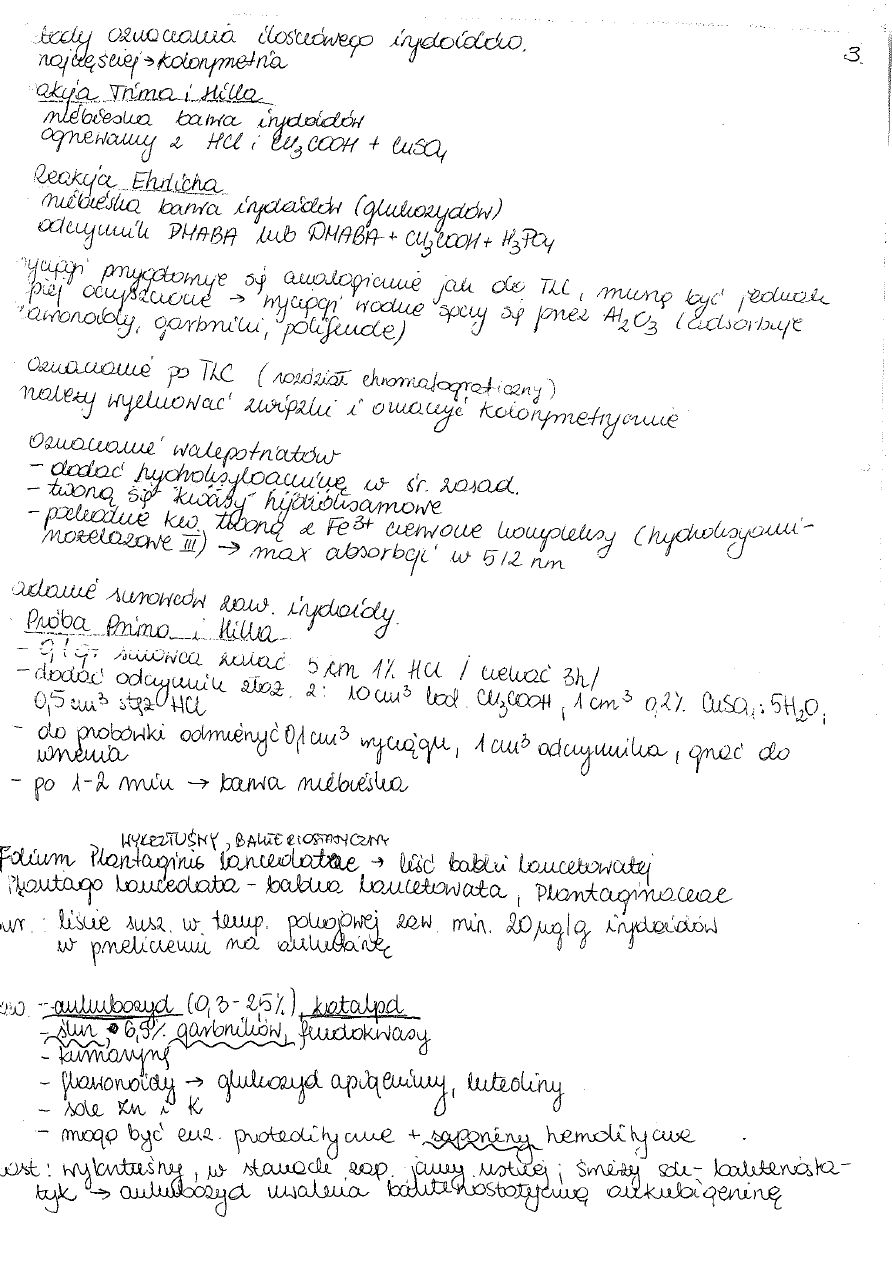 tody oznaczania ilościowego irydoidów.
najczęściej → kolorymetria
3.
akcja Trima i Hilla
niebieska barwa irydoidów
ogrzewamy z HCl i CH3COOH + CuSO4
Reakcja Ehrlicha
niebieska barwa irydoidów (glukozydów)
odczynnik DMABA lub DMABA + CH3COOH + H3PO4
yciągi przygotowuje się analogicznie jak do TLC, muszą być jednak
piej oczyszczone → wyciągi wodne sączy się przez Al2O3 (adsorbuje
awonoidy, garbniki, polifenole)
Oznaczanie po TLC (rozdział chromatograficzny)
należy wyeluować związki i oznaczyć kolorymetrycznie
Oznaczanie walepotriatów
- dodać hydroksyloaminę w śr. zasad.
- tworzą się kwasy hydroksamowe
- pochodne kw. tworzą z Fe3+ czerwone kompleksy (hydroksyami-
nożelazowe III) → max absorbcji w 512 nm
adanie surowców zaw. irydoidy.
Próba Trima i Hilla
- 0,1g. surowca zalać 5 cm 1% HCl / czekać 3h/
- dodać odczynnik złoż. z: 10 cm3 lod. CH3COOH, 1 cm3 0,2% CuSO4·5H2O,
0,5 cm3 stęż HCl
- do probówki odmierzyć 0,1 cm3 wyciągu, 1 cm3 odczynnika, grzać do
wrzenia
- po 1-2 min → barwa niebieska
WYKRZTUŚNY, BAKTERIOSTATYCZNY
Folium Plantaginis lanceolatae → liść babki lancetowatej
Plantago lanceolata - babka lancetowata, Plantaginaceae
sur.: liście susz. w temp. pokojowej zaw. min. 20 µg/g irydoidów
w przeliczeniu na aukubinę
- aukubozyd (0,3-2,5%), katalpol
- śluz, 6,5% garbników, fenolokwasy
- kumarynę
- flawonoidy → glukozyd apigeniny, luteoliny
- sole Zn i K
- mogą być enz. proteolityczne + saponiny hemolityczne
ast: wykrztuśnej, w stanach zap. jamy ustnej; świeży sok - bakteriosta-
tyk → aukubozyd uwalnia bakteriostatyczną aukubigeninę